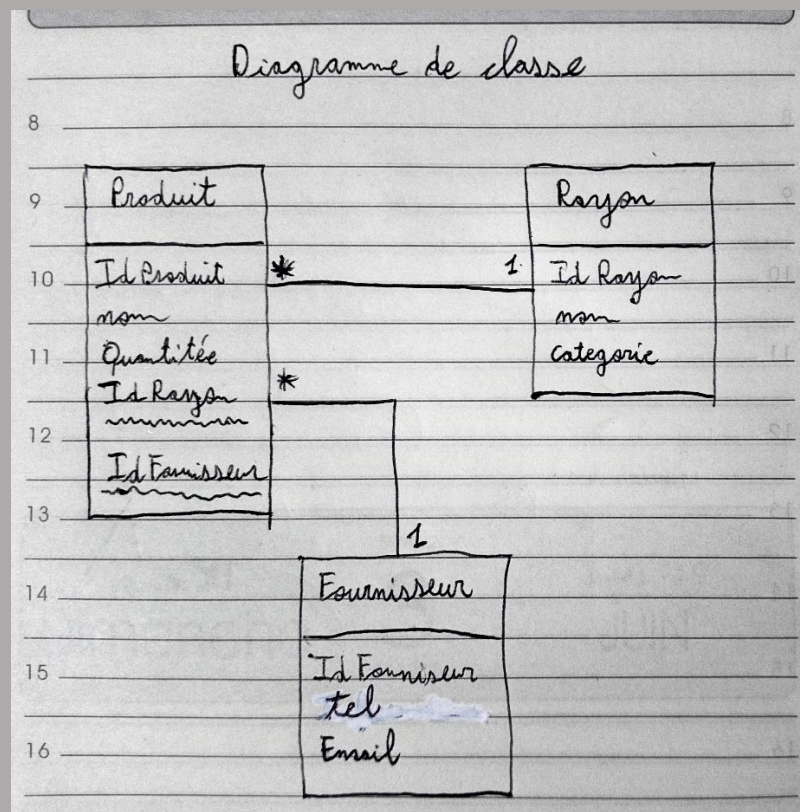 Diagramme de classe
8
9
10
11
12
13
14
15
16
Produit
Id Produit
nom
Quantitée
Id Rayon
Id Fournisseur
*
1
Rayon
Id Rayon
nom
categorie
*
1
Fournisseur
Id Fourniseur
tel
Email